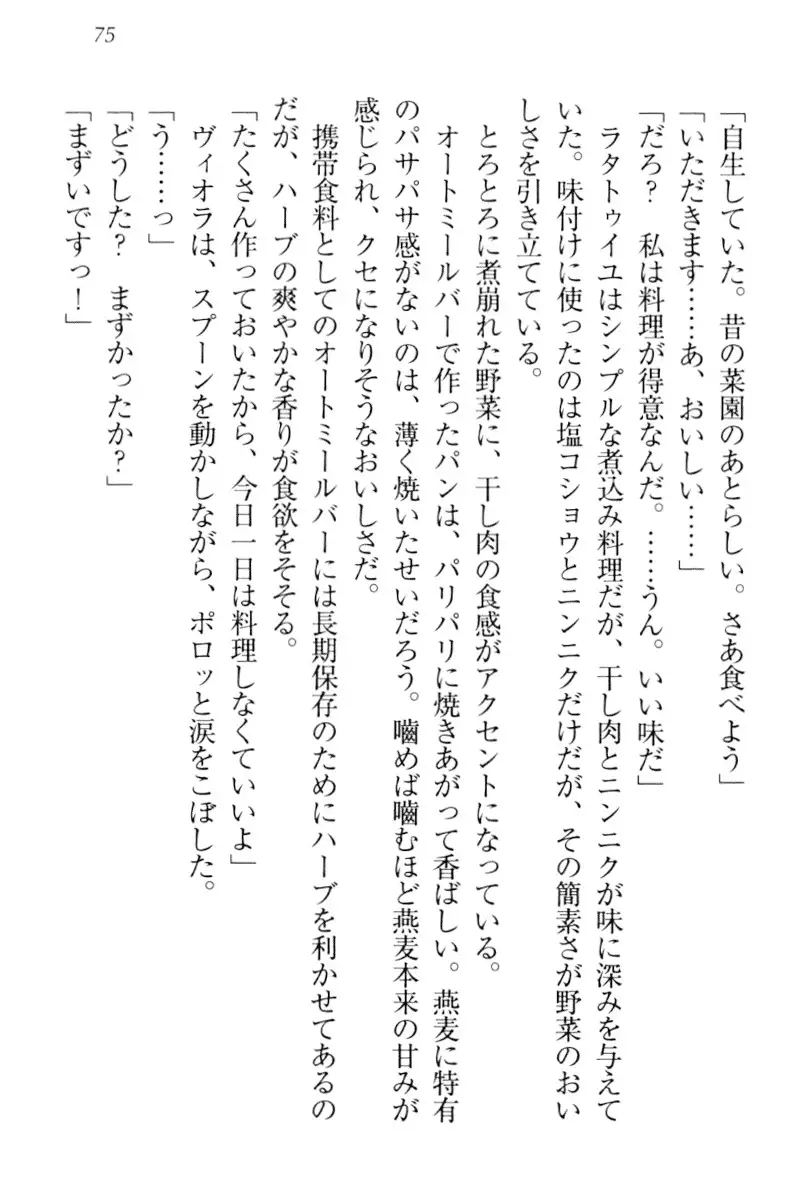 75
「自生していた。昔の菜園のあとらしい。さあ食べよう」
「いただきます……あ、おいしい……」
「だろ？　私は料理が得意なんだ。……うん。いい味だ」
　ラタトゥイユはシンプルな煮込み料理だが、干し肉とニンニクが味に深みを与えて
いた。味付けに使ったのは塩コショウとニンニクだけだが、その簡素さが野菜のおい
しさを引き立てている。
　とろとろに煮崩れた野菜に、干し肉の食感がアクセントになっている。
　オートミールバーで作ったパンは、パリパリに焼きあがって香ばしい。燕麦に特有
のパサパサ感がないのは、薄く焼いたせいだろう。嚙めば嚙むほど燕麦本来の甘みが
感じられ、クセになりそうなおいしさだ。
　携帯食料としてのオートミールバーには長期保存のためにハーブを利かせてあるの
だが、ハーブの爽やかな香りが食欲をそそる。
「たくさん作っておいたから、今日一日は料理しなくていいよ」
　ヴィオラは、スプーンを動かしながら、ポロッと涙をこぼした。
「う……っ」
「どうした？　まずかったか？」
「まずいですっ！」